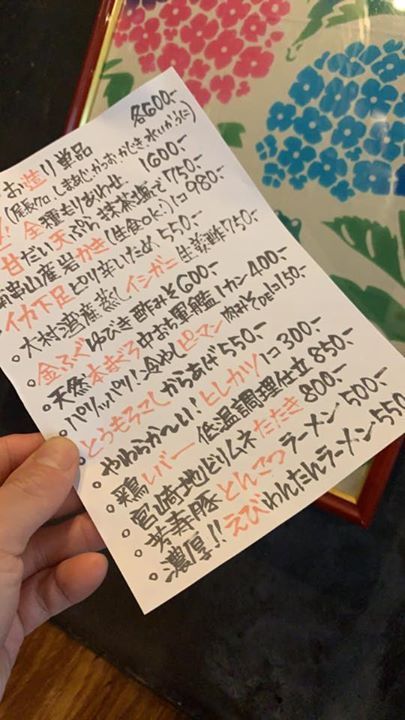 お造り単品 各600-
(尾長グロ、しまあじ、かつお、かじき、水いか、うに)
全種もりあわせ 1600-
甘だい天ぷら 抹茶塩で 750-
串山産岩かき(生食OK.) 1コ 980-
イカ下足ピリ辛いため 550-
○大村湾産蒸しイシガニ 生姜酢 750-
○金ふぐゆびき酢みそ 600-
○天然本まぐろ中おち軍艦 1カン 400-
○パリッパリ!冷やしピーマン 肉みそON 1コ150-
○とうもろこしからあげ 550-
○やわらか〜い!ヒレカツ 1コ 300-
○鶏レバー 低温調理仕立 850-
○宮崎地どりムネたたき 800-
○芳寿豚とんこつラーメン 500-
○濃厚!!えびわんたんラーメン 550